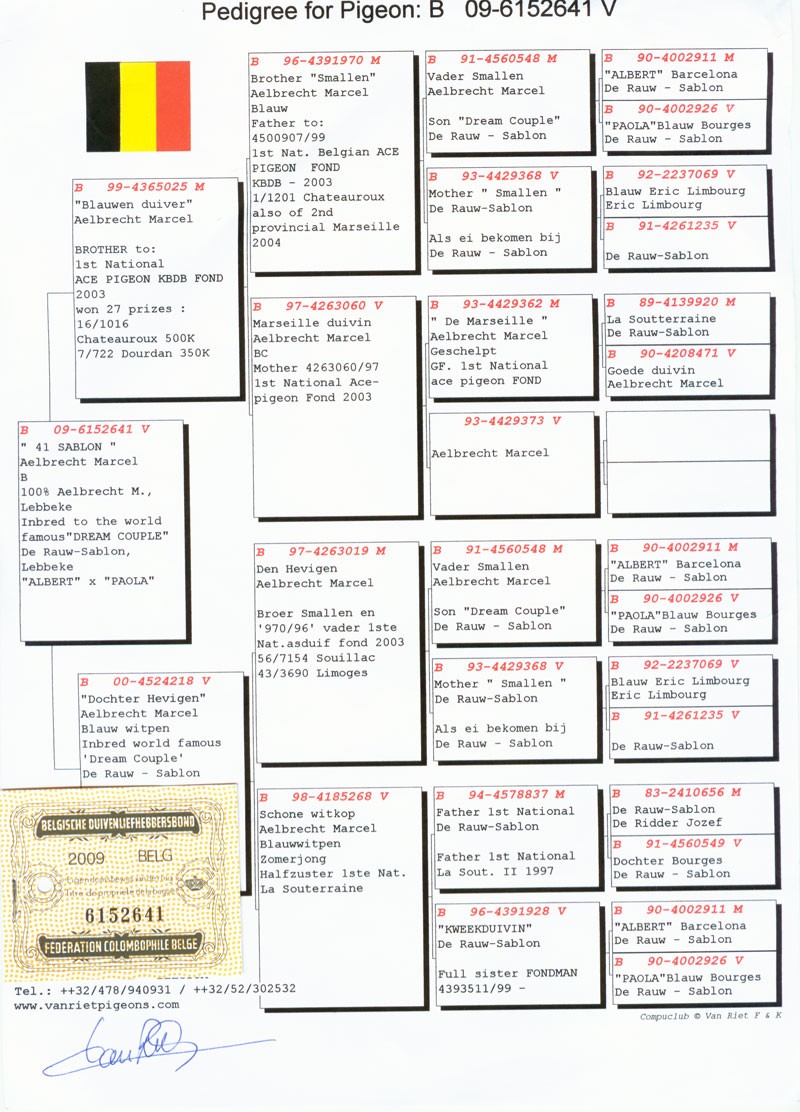 Pedigree for Pigeon: B 09-6152641 V
B 09-6152641 V
" 41 SABLON "
Aelbrecht Marcel
B
100% Aelbrecht M.,
Lebbeke
Inbred to the world
famous"DREAM COUPLE"
De Rauw-Sablon,
Lebbeke
"ALBERT" x "PAOLA"
B 99-4365025 M
"Blauwen duiver"
Aelbrecht Marcel
BROTHER to:
1st National
ACE PIGEON KBDB FOND
2003
won 27 prizes :
16/1016
Chateauroux 500K
7/722 Dourdan 350K
B 00-4524218 V
"Dochter Hevigen"
Aelbrecht Marcel
Blauw witpen
Inbred world famous
'Dream Couple'
De Rauw - Sablon
B 96-4391970 M
Brother "Smallen"
Aelbrecht Marcel
Blauw
Father to:
4500907/99
1st Nat. Belgian ACE
PIGEON FOND
KBDB - 2003
1/1201 Chateauroux
also of 2nd
provincial Marseille
2004
B 97-4263060 V
Marseille duivin
Aelbrecht Marcel
BC
Mother 4263060/97
1st National Ace-
pigeon Fond 2003
B 97-4263019 M
Den Hevigen
Aelbrecht Marcel
Broer Smallen en
'970/96' vader 1ste
Nat.asduif fond 2003
56/7154 Souillac
43/3690 Limoges
B 98-4185268 V
Schone witkop
Aelbrecht Marcel
Blauwwitpen
Zomerjong
Halfzuster 1ste Nat.
La Souterraine
B 91-4560548 M
Vader Smallen
Aelbrecht Marcel
Son "Dream Couple"
De Rauw - Sablon
B 93-4429368 V
Mother " Smallen "
De Rauw-Sablon
Als ei bekomen bij
De Rauw - Sablon
B 93-4429362 M
" De Marseille "
Aelbrecht Marcel
Geschelpt
GF. 1st National
ace pigeon FOND
93-4429373 V
Aelbrecht Marcel
B 91-4560548 M
Vader Smallen
Aelbrecht Marcel
Son "Dream Couple"
De Rauw - Sablon
B 93-4429368 V
Mother " Smallen "
De Rauw-Sablon
Als ei bekomen bij
De Rauw - Sablon
B 94-4578837 M
Father 1st National
De Rauw-Sablon
Father 1st National
La Sout. II 1997
B 96-4391928 V
"KWEEKDUIVIN"
De Rauw-Sablon
Full sister FONDMAN
4393511/99 -
B 90-4002911 M
"ALBERT" Barcelona
De Rauw - Sablon
B 90-4002926 V
"PAOLA"Blauw Bourges
De Rauw - Sablon
B 92-2237069 V
Blauw Eric Limbourg
Eric Limbourg
B 91-4261235 V
De Rauw-Sablon
B 89-4139920 M
La Soutterraine
De Rauw-Sablon
B 90-4208471 V
Goede duivin
Aelbrecht Marcel
B 90-4002911 M
"ALBERT" Barcelona
De Rauw - Sablon
B 90-4002926 V
"PAOLA"Blauw Bourges
De Rauw - Sablon
B 92-2237069 V
Blauw Eric Limbourg
Eric Limbourg
B 91-4261235 V
De Rauw-Sablon
B 83-2410656 M
De Rauw-Sablon
De Ridder Jozef
B 91-4560549 V
Dochter Bourges
De Rauw - Sablon
B 90-4002911 M
"ALBERT" Barcelona
De Rauw - Sablon
B 90-4002926 V
"PAOLA"Blauw Bourges
De Rauw - Sablon
BELGISCHE DUIVENLIEFHEBBERSBOND
2009 BELG
6152641
FEDERATION COLOMBOPHILE BELGE
Tel.: ++32/478/940931 / ++32/52/302532
www.vanrietpigeons.com
Compuclub © Van Riet F & K